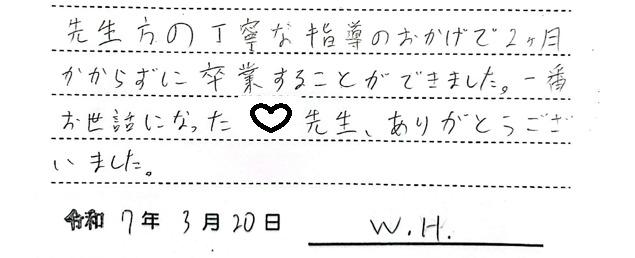 先生方の丁寧な指導のおかげで2ヶ月
かからずに卒業することができました。一番
お世話になった♡先生、ありがとうござ
いました。
令和7年3月20日 W.H.